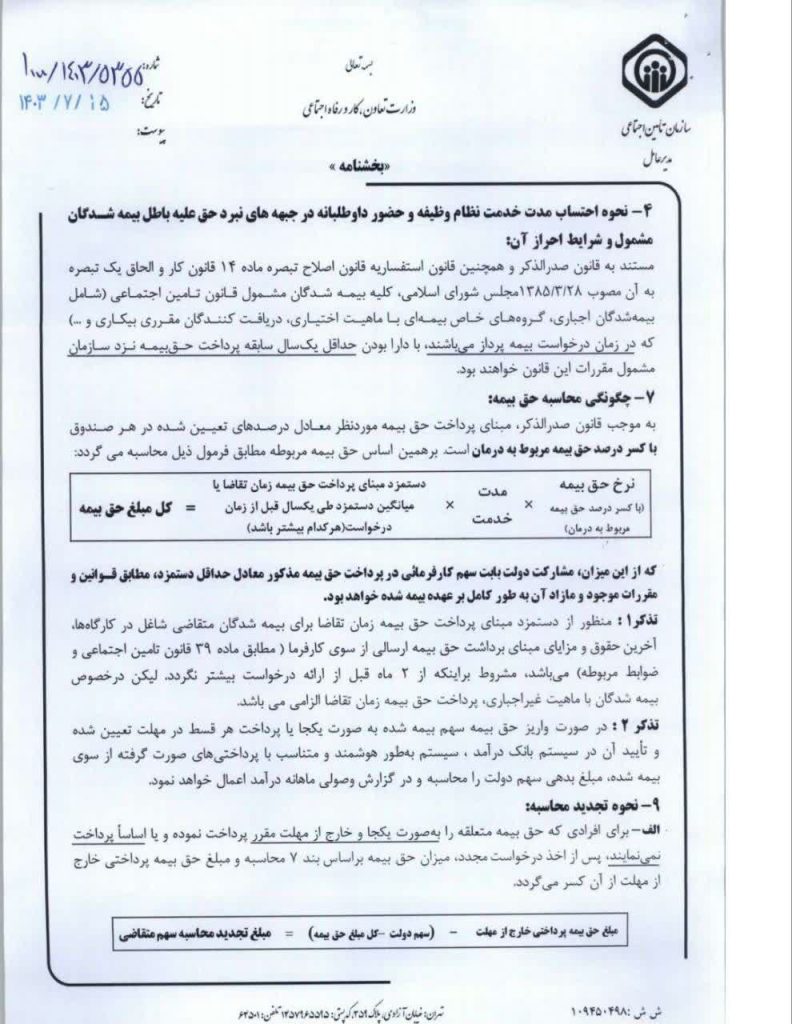 بسمه تعالی
وزارت تعاون، کار و رفاه اجتماعی
سازمان تأمین اجتماعی
مدیرعامل
شماره: ۱۰۰۰/۱۴۰۳/۵۳۵۵
تاریخ: ۱۴۰۳/۷/۱۵
پیوست:
«بخشنامه»
۴- نحوه احتساب مدت خدمت نظام وظیفه و حضور داوطلبانه در جبهه های نبرد حق علیه باطل بیمه شدگان
مشمول و شرایط احراز آن:
مستند به قانون صدرالذکر و همچنین قانون استفساریه قانون اصلاح تبصره ماده ۱۴ قانون کار و الحاق یک تبصره
به آن مصوب ۱۳۸۵/۳/۲۸مجلس شورای اسلامی، کلیه بیمه شدگان مشمول قانون تامین اجتماعی (شامل
بیمه‌شدگان اجباری، گروه‌های خاص بیمه‌ای با ماهیت اختیاری، دریافت کنندگان مقرری بیکاری و ...)
که در زمان درخواست بیمه پرداز می‌باشند، با دارا بودن حداقل یک‌سال سابقه پرداخت حق‌بیمه نزد سازمان
مشمول مقررات این قانون خواهند بود.
۷- چگونگی محاسبه حق بیمه:
به موجب قانون صدرالذکر، مبنای پرداخت حق بیمه موردنظر معادل درصدهای تعیین شده در هر صندوق
با کسر درصد حق بیمه مربوط به درمان است. برهمین اساس حق بیمه مربوطه مطابق فرمول ذیل محاسبه می گردد:
نرخ حق بیمه
(با کسر درصد حق بیمه
مربوط به درمان)
×
مدت
خدمت
×
دستمزد مبنای پرداخت حق بیمه زمان تقاضا یا
میانگین دستمزد طی یکسال قبل از زمان
درخواست(هرکدام بیشتر باشد)
=
کل مبلغ حق بیمه
که از این میزان، مشارکت دولت بابت سهم کارفرمائی در پرداخت حق بیمه مذکور معادل حداقل دستمزد، مطابق قوانین و
مقررات موجود و مازاد آن به طور کامل بر عهده بیمه شده خواهد بود.
تذکر۱: منظور از دستمزد مبنای پرداخت حق بیمه زمان تقاضا برای بیمه شدگان متقاضی شاغل در کارگاه‌ها،
آخرین حقوق و مزایای مبنای برداشت حق بیمه ارسالی از سوی کارفرما ( مطابق ماده ۳۹ قانون تامین اجتماعی و
ضوابط مربوطه) می‌باشد، مشروط براینکه از ۲ ماه قبل از ارائه درخواست بیشتر نگردد. لیکن درخصوص
بیمه شدگان با ماهیت غیراجباری، پرداخت حق بیمه زمان تقاضا الزامی می باشد.
تذکر ۲: در صورت واریز حق بیمه سهم بیمه شده به صورت یکجا یا پرداخت هر قسط در مهلت تعیین شده
و تأیید آن در سیستم بانک درآمد ، سیستم به‌طور هوشمند و متناسب با پرداختی‌های صورت گرفته از سوی
بیمه شده، مبلغ بدهی سهم دولت را محاسبه و در گزارش وصولی ماهانه درآمد اعمال خواهد نمود.
۹- نحوه تجدید محاسبه:
الف- برای افرادی که حق بیمه متعلقه را به‌صورت یکجا و خارج از مهلت مقرر پرداخت نموده و یا اساساً پرداخت
نمی‌نمایند، پس از اخذ درخواست مجدد، میزان حق بیمه براساس بند ۷ محاسبه و مبلغ حق بیمه پرداختی خارج
از مهلت از آن کسر می‌گردد.
مبلغ حق بیمه پرداختی خارج از مهلت - (سهم دولت -کل مبلغ حق بیمه) = مبلغ تجدید محاسبه سهم متقاضی
ش ش :۱۰۹۴۵۰۴۹۸
تهران: خیابان آزادی، پلاک ۳۵۹، کدپستی: ۱۴۵۷۹۶۵۵۹۵ تلفن: ۶۴۵۰۱